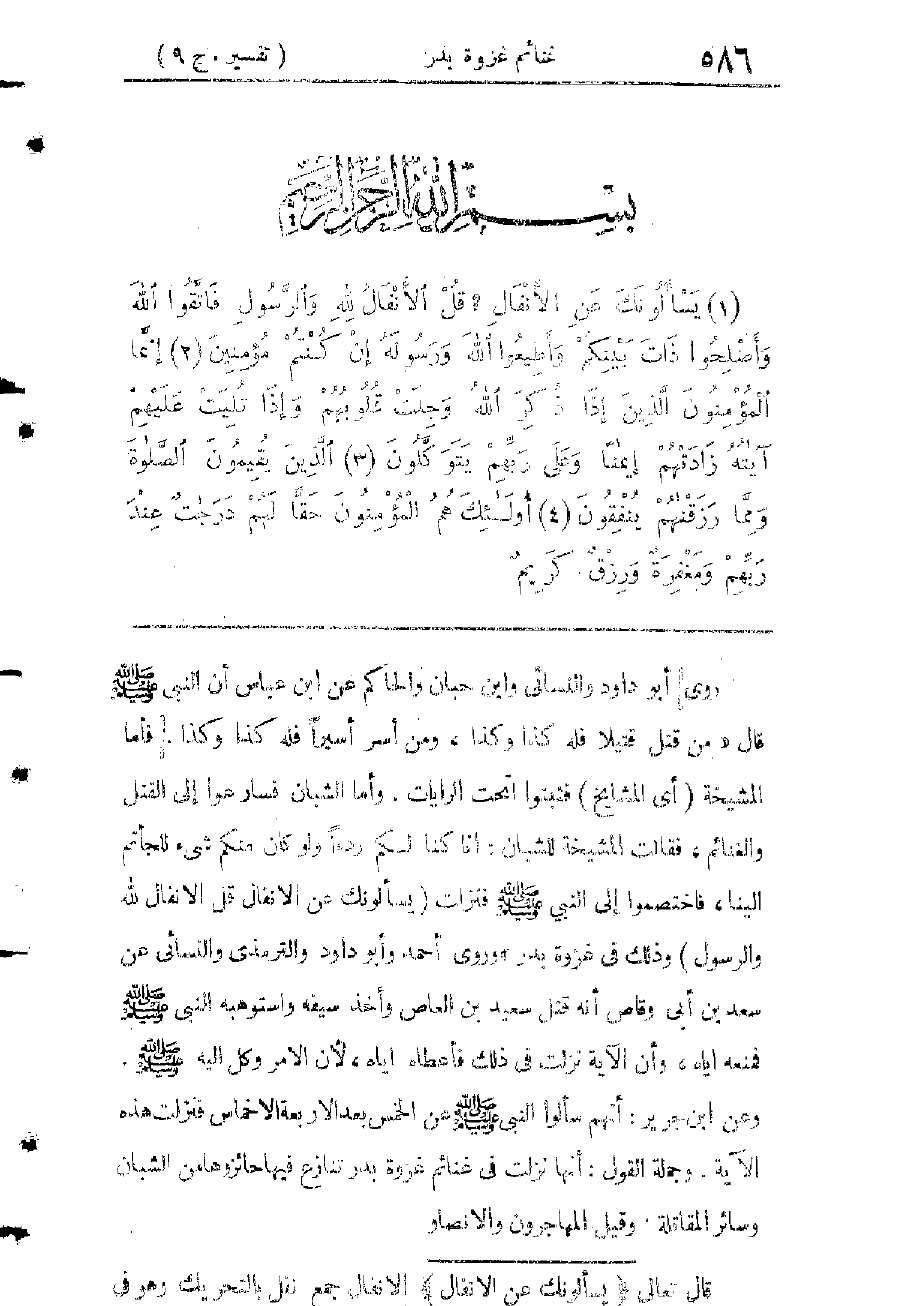 ٥٨٦ غنائم غزوة بدر ( تفسير . ج ٩ )
بسم الله الرحمن الرحيم
(١) يَسْأَلُونَكَ عَنِ الْأَنْفَالِ ? قُلْ الْأَنْفَالُ لِلهِ وَالرَّسُولِ فَاتَّقُوا اللهَ
وَأَصْلِحُوا ذَاتَ بَيْنِكُمْ وَأَطِيعُوا اللهَ وَرَسُولَهُ إِنْ كُنْتُمْ مُؤْمِنِينَ (٢) إِنَّمَا
الْمُؤْمِنُونَ الَّذِينَ إِذَا ذُكِرَ اللهُ وَجِلَتْ قُلُوبُهُمْ وَإِذَا تُلِيَتْ عَلَيْهِمْ
آيٰتُهُ زَادَتْهُمْ إِيمٰنًا وَعَلَى رَبِّهِمْ يَتَوَكَّلُونَ (٣) الَّذِينَ يُقِيمُونَ الصَّلٰوةَ
وَمِمَّا رَزَقْنٰهُمْ يُنْفِقُونَ (٤) أُولَـٰئِكَ هُمُ الْمُؤْمِنُونَ حَقًّا لَهُمْ دَرَجٰتٌ عِنْدَ
رَبِّهِمْ وَمَغْفِرَةٌ وَرِزْقٌ كَرِيمٌ
روى أبو داود والنسائى وابن حبان والحاكم عن ابن عباس أن النبى ﷺ
قال « من قتل قتيلا فله كذا وكذا ، ومن أسر أسيراً فله كذا وكذا . فأما
المشيخة ( أى المشايخ ) فثبتوا تحت الرايات . وأما الشبان فسارعوا إلى القتل
والغنائم ، فقالت المشيخة للشبان : انا كنا لكم ردءاً ولو كان منكم شىء للجأتم
الينا ، فاختصموا إلى النبي ﷺ فنزلت ( يسألونك عن الانفال قل الانفال لله
والرسول ) وذلك فى غزوة بدر . وروى أحمد وأبو داود والترمذى والنسائى عن
سعد بن أبى وقاص أنه قتل سعيد بن العاص وأخذ سيفه واستوهبه النبى ﷺ
فمنعه اياه ، وأن الآية نزلت فى ذلك فأعطاه اياه ، لأن الامر وكل اليه ﷺ .
وعن ابن جرير : أنهم سألوا النبى ﷺ عن الخمس بعد الاربعة الاخماس فنزلت هذه
الآية . وجملة القول : أنها نزلت فى غنائم غزوة بدر تنازع فيها حائزوها من الشبان
وسائر المقاتلة . وقيل المهاجرون والانصار
قال تعالى ﴿ يسألونك عن الانفال ﴾ الانفال جمع نفل بالتحريك وهو فى